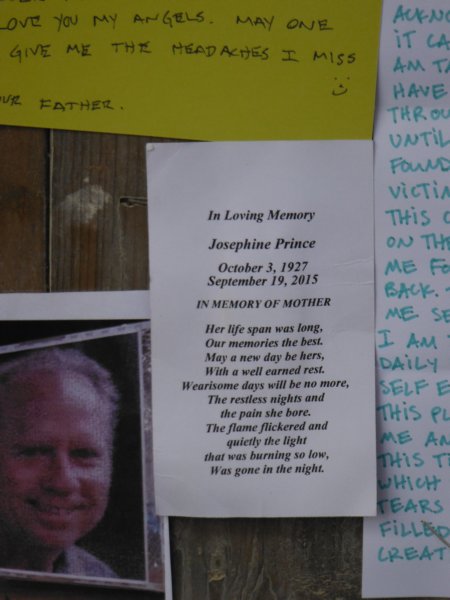 LOVE YOU MY ANGELS. MAY ONE
GIVE ME THE HEADACHES I MISS
FATHER.
In Loving Memory
Josephine Prince
October 3, 1927
September 19, 2015
IN MEMORY OF MOTHER
Her life span was long,
Our memories the best.
May a new day be hers,
With a well earned rest.
Wearisome days will be no more,
The restless nights and
the pain she bore.
The flame flickered and
quietly the light
that was burning so low,
Was gone in the night.
IT CA
AM TA
HAVE
THROU
UNTIL
FOUND
VICTIM
THIS C
ON THE
ME FO
BACK.
ME SE
I AM
DAILY
SELF E
THIS PL
ME AN
THIS TE
WHICH
TEARS
FILLED
CREAT